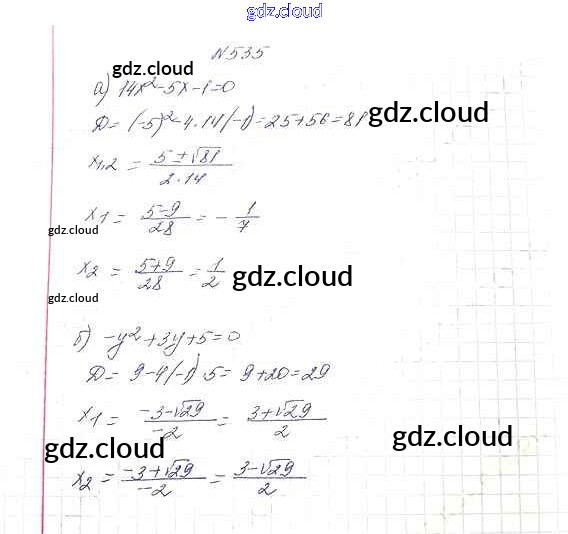 gdz.cloud
№535
gdz.cloud
а) 14x²-5x-1=0
D= (-5)²-4·14(-1)=25+56=81
gdz.cloud
x1,2 = (5±√81)/(2·14)
x1 = (5-9)/28 = -1/7
gdz.cloud
x2 = (5+9)/28 = 1/2
gdz.cloud
gdz.cloud
б) -y²+3y+5=0
D= 9-4(-1)·5= 9+20=29
x1 = (-3-√29)/-2 = (3+√29)/2
gdz.cloud
gdz.cloud
x2 = (-3+√29)/-2 = (3-√29)/2